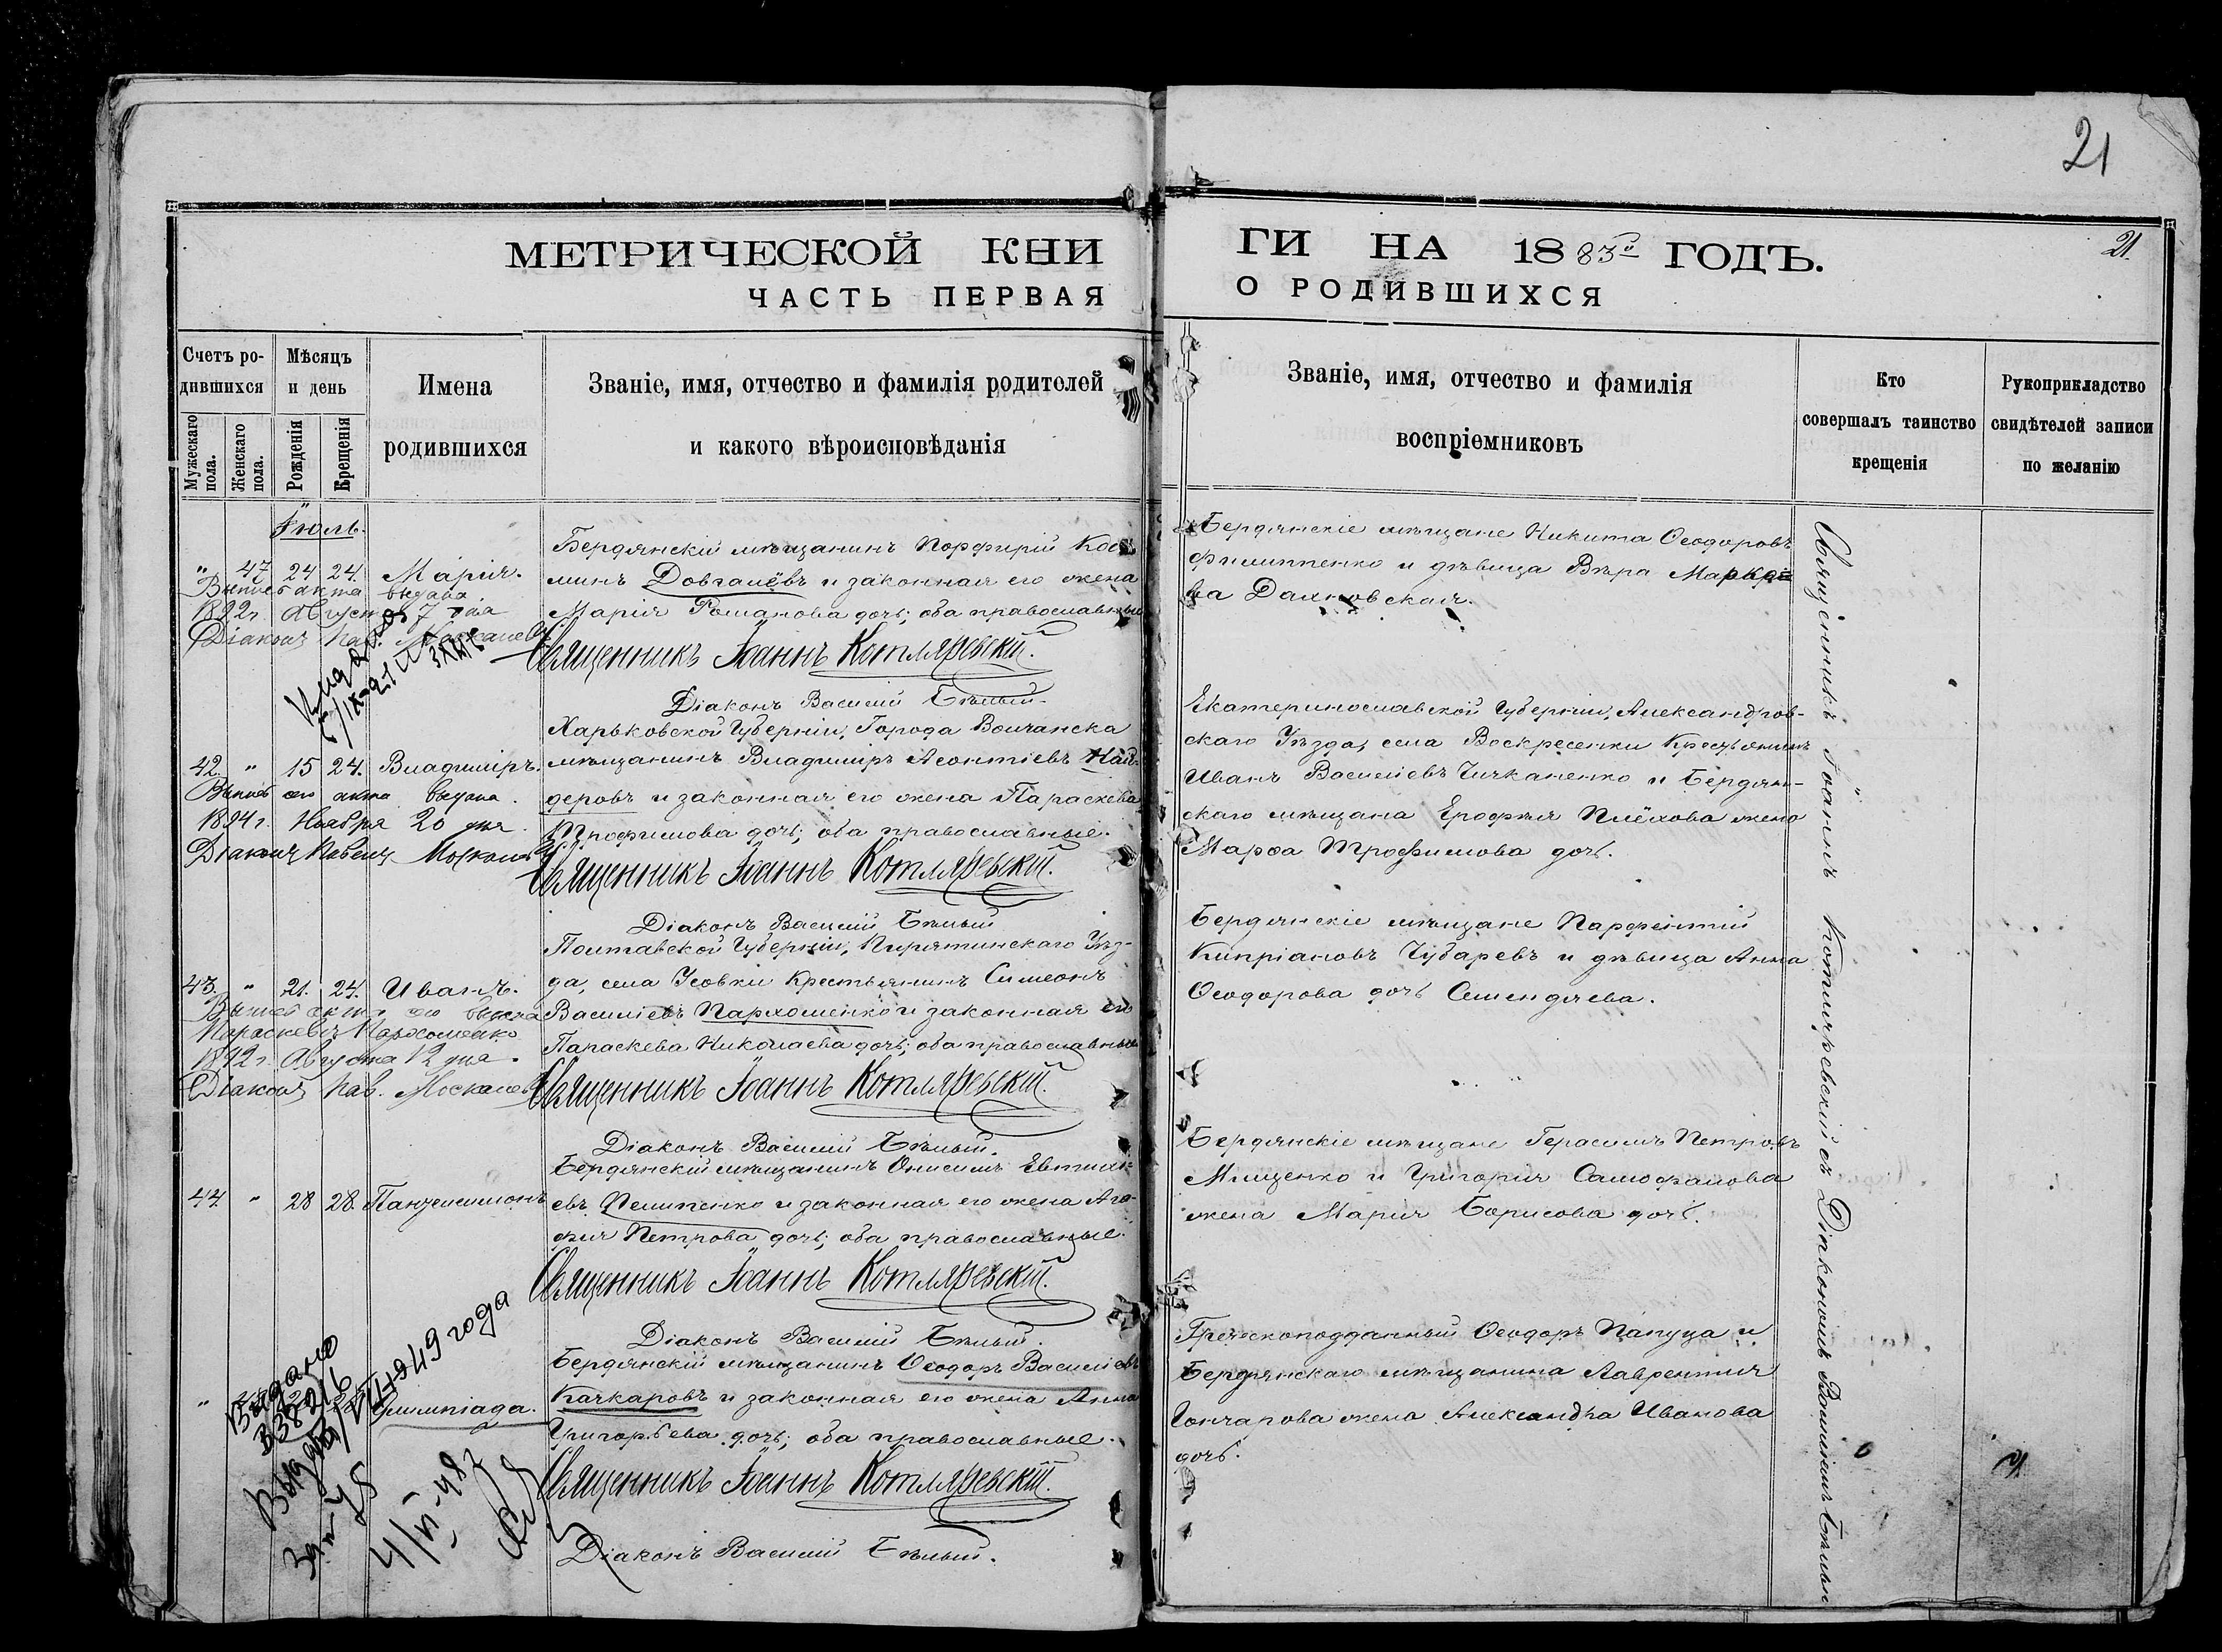 21
МЕТРИЧЕСКОЙ КНИ
ГИ НА 1883й ГОДЪ.
21.
ЧАСТЬ ПЕРВАЯ
О РОДИВШИХСЯ
Счетъ ро-
дившихся
Мужескаго пола.
Женскаго пола.
Мѣсяцъ
и день
Рожденія
Крещенія
Имена
родившихся
Званіе, имя, отчество и фамилія родителей
и какого вѣроисповѣданія
Званіе, имя, отчество и фамилія
воспріемниковъ
Кто
совершалъ таинство
крещенія
Рукоприкладство
свидѣтелей записи
по желанію
Іюль.
" 47 24 24. Марія.
Выпись акта выдана
1892г. Августа 7 дня
Діаконъ Пав. Москалевъ
Бердянскій мѣщанинъ Порфирій Кос
минъ Довгалёвъ и законная его жена
Марія Романова дочь; оба православные
Священникъ Іоаннъ Котляревскій.
Діаконъ Василій Бѣлый.
Бердянскіе мѣщане Никита Ѳеодоровъ
Филиппенко и дѣвица Вѣра Марко
ва Далновская.
42. " 15 24. Владиміръ.
Выпись сего акта выдана.
1894г. Ноября 20 дня.
Діаконъ Павелъ Москалевъ
Харьковской Губерніи, Города Волчанска
мѣщанинъ Владиміръ Леонтіевъ Най-
деровъ и законная его жена Параскева
Трофимова дочь; оба православные.
Священникъ Іоаннъ Котляревскій.
Діаконъ Василій Бѣлый
Екатеринославской Губерніи, Александров-
скаго Уѣзда, села Воскресенки Крестьянинъ
Иванъ Василіевъ Чичканенко и Бердян-
скаго мѣщана Ерофѣя Плёхова жена
Марѳа Трофимова дочь.
43. " 21. 24. Иванъ.
Выпись акта сего выдана
Параскевѣ Пархоменко
1892г. Августа 12 дня.
Діаконъ Пав. Москалевъ
Полтавской Губерніи, Пирятинскаго Уѣз-
да, села Усовки Крестьянинъ Симеонъ
Василіевъ Пархоменко и законная его
Параскева Николаева дочь; оба православные
Священникъ Іоаннъ Котляревскій.
Діаконъ Василій Бѣлый.
Бердянскіе мѣщане Парфентій
Кипріановъ Чубаревъ и дѣвица Анна
Ѳеодорова дочь Семендяева.
44. " 28 28. Пантелеимонъ
Бердянскій мѣщанинъ Онисимъ Евтихі-
евъ Пелипенко и законная его жена Ага-
фія Петрова дочь; оба православные.
Священникъ Іоаннъ Котляревскій.
Діаконъ Василій Бѣлый.
Бердянскіе мѣщане Герасимъ Петровъ
Мищенко и Григорія Самофалова
жена Марія Борисова дочь.
" Олимпіада.
Бердянскій мѣщанинъ Ѳеодоръ Василіевъ
Качкаровъ и законная его жена Анна
Григорьева дочь; оба православные.
Священникъ Іоаннъ Котляревскій.
Діаконъ Василій Бѣлый.
Греческоподданный Ѳеодоръ Папуца и
Бердянскаго мѣщанина Лаврентія
Гончарова жена Александра Иванова
дочь.
Выдано
1949 года
4/VI-48г
Священникъ Іоаннъ Котляревскій съ Діакономъ Василіемъ Бѣлымъ